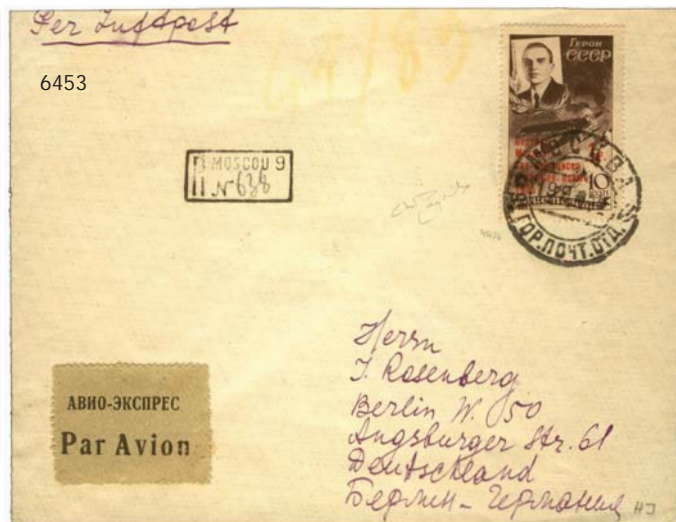 Per Luftpost
6453
ГЕРОИ
СССР
R MOSCOU 9
II № 638
1 р.
10
МОСКВА
ГОР.ПОЧТ.ОТД.
АВИО-ЭКСПРЕС
Par Avion
Herrn
J. Rosenberg
Berlin W. 50
Augsburger Str. 61
Deutschland
Берлин - Германия